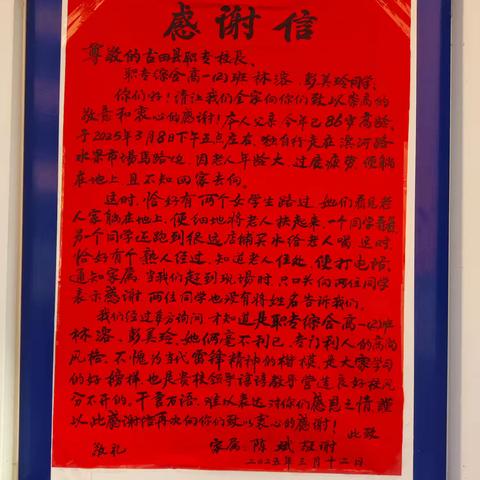 感谢信
尊敬的古田县职专校长、
职专综合高一(2)班林溶、彭美玲同学:
你们好!请让我们全家向你们致以崇高的
敬意和衷心的感谢!本人父亲,今年已86岁高龄,
于2025年3月8日下午五点左右,独自行走在滨河路
水果市场马路边,因老人年龄大,过度疲劳,便躺
在地上,且不知回家去向。
这时,恰好有两个女学生路过,她们看见老
人家躺在地上,便细心地将老人扶起来,一个同学看着
另一个同学还跑到很远店铺买水给老人喝,这时,
恰好有个熟人经过,知道老人住处,便打电话
通知家属,当我们赶到现场时,只口头向两位同学
表示感谢,两位同学也没有将姓名告诉我们。
我们经过多方询问,才知道是职专综合高一(2)班
林溶、彭美玲,她俩毫不利己,专门利人的高尚
风格,不愧为当代雷锋精神的楷模,是大家学习
的好榜样,也是贵校领导谆谆教导营造良好校风
分不开的,千言万语,难以表达对你们感恩之情,谨
以此感谢信再次向你们致以衷心的感谢!
此致
敬礼
家属:陈斌敬谢
2025年三月十二日